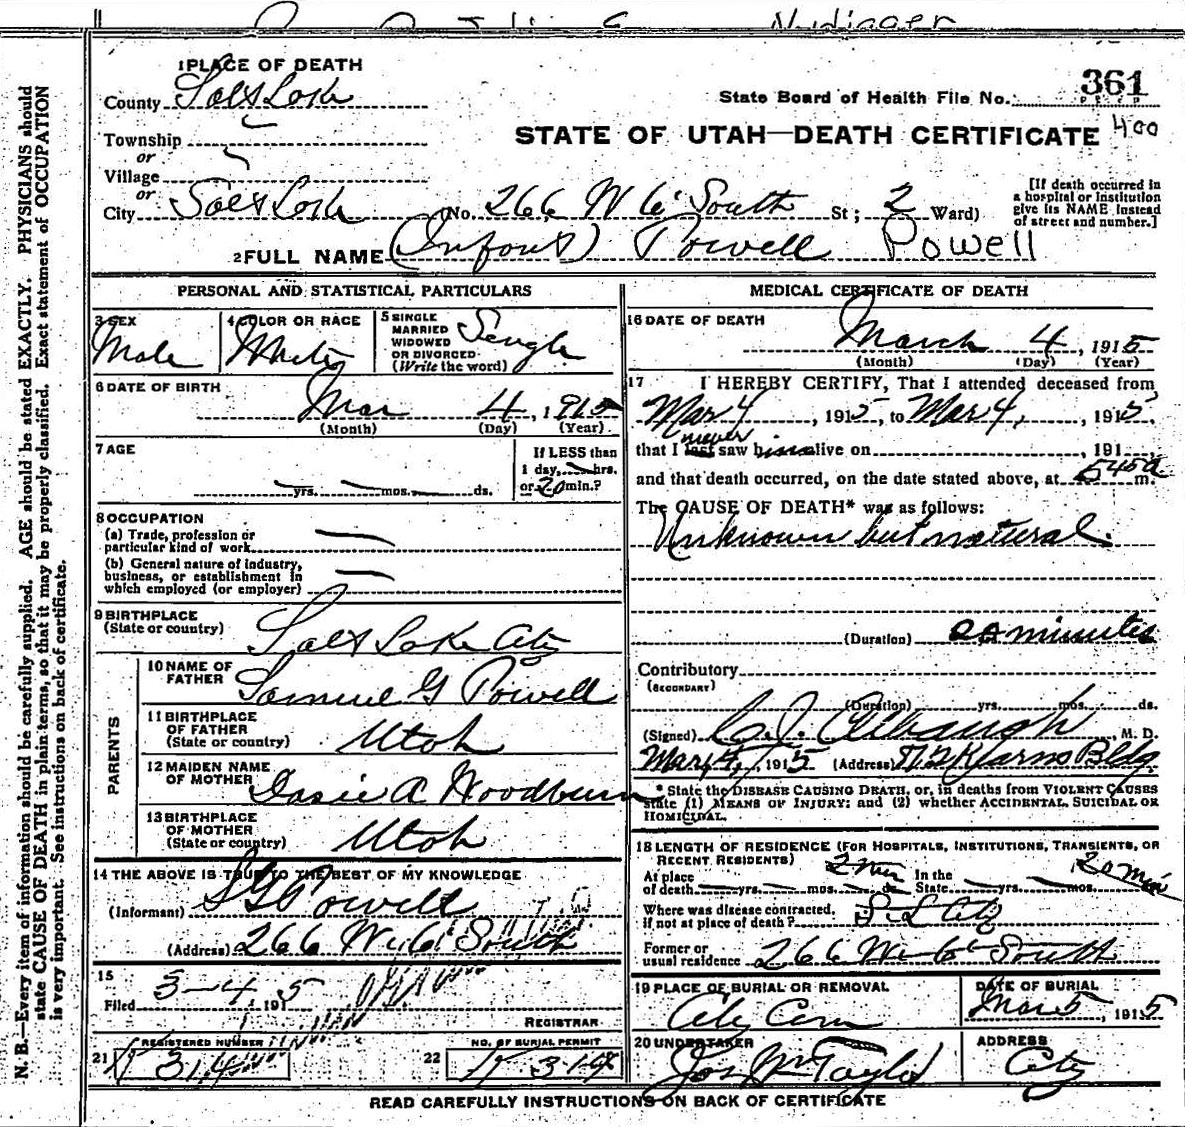 1 PLACE OF DEATH
County Salt Lake
State Board of Health File No. 361
Township
STATE OF UTAH—DEATH CERTIFICATE 400
or
Village
or
City Salt Lake (No. 266 W 6 South St; 2 Ward)
[If death occurred in
a hospital or institution
give its NAME instead
of street and number.]
2 FULL NAME (Infant) Powell Powell
PERSONAL AND STATISTICAL PARTICULARS
3 SEX
Male
4 COLOR OR RACE
White
5 SINGLE
MARRIED
WIDOWED
OR DIVORCED
(Write the word)
Single
6 DATE OF BIRTH
Mar 4, 1915
(Month) (Day) (Year)
7 AGE
yrs. mos. ds.
If LESS than
1 day, hrs.
or 20 min.?
8 OCCUPATION
(a) Trade, profession or
particular kind of work
(b) General nature of industry,
business, or establishment in
which employed (or employer)
9 BIRTHPLACE
(State or country) Salt Lake City
PARENTS
10 NAME OF
FATHER Samuel G Powell
11 BIRTHPLACE
OF FATHER
(State or country) Utah
12 MAIDEN NAME
OF MOTHER A Woodburn
13 BIRTHPLACE
OF MOTHER
(State or country) Utah
14 THE ABOVE IS TRUE TO THE BEST OF MY KNOWLEDGE
(Informant) S G Powell
(Address) 266 W 6 South
15
Filed 3-4, 1915
REGISTRAR
21 REGISTERED NUMBER
314
22 NO. OF BURIAL PERMIT
MEDICAL CERTIFICATE OF DEATH
16 DATE OF DEATH
March 4, 1915
(Month) (Day) (Year)
17 I HEREBY CERTIFY, That I attended deceased from
Mar 4, 1915, to Mar 4, 1915,
never
that I last saw him alive on 191
and that death occurred, on the date stated above, at 545 a m.
The CAUSE OF DEATH* was as follows:
Unknown but natural.
(Duration) 20 minutes
Contributory
(SECONDARY)
(Duration) yrs. mos. ds.
(Signed) M. D.
Mar 4, 1915 (Address) Kearns Bldg
* State the DISEASE CAUSING DEATH, or, in deaths from VIOLENT CAUSES
state (1) MEANS OF INJURY; and (2) whether ACCIDENTAL, SUICIDAL OR
HOMICIDAL.
18 LENGTH OF RESIDENCE (FOR HOSPITALS, INSTITUTIONS, TRANSIENTS, OR
RECENT RESIDENTS)
At place
of death yrs. mos. ds. In the
State yrs. mos. 20 min
Where was disease contracted,
if not at place of death? S. L City
Former or
usual residence 266 W 6 South
19 PLACE OF BURIAL OR REMOVAL
City Cem
DATE OF BURIAL
Mar 5, 1915
20 UNDERTAKER
Jos Wm Taylor
ADDRESS
City
READ CAREFULLY INSTRUCTIONS ON BACK OF CERTIFICATE
N. B.—Every item of information should be carefully supplied. AGE should be stated EXACTLY. PHYSICIANS should
state CAUSE OF DEATH in plain terms, so that it may be properly classified. Exact statement of OCCUPATION
is very important. See instructions on back of certificate.